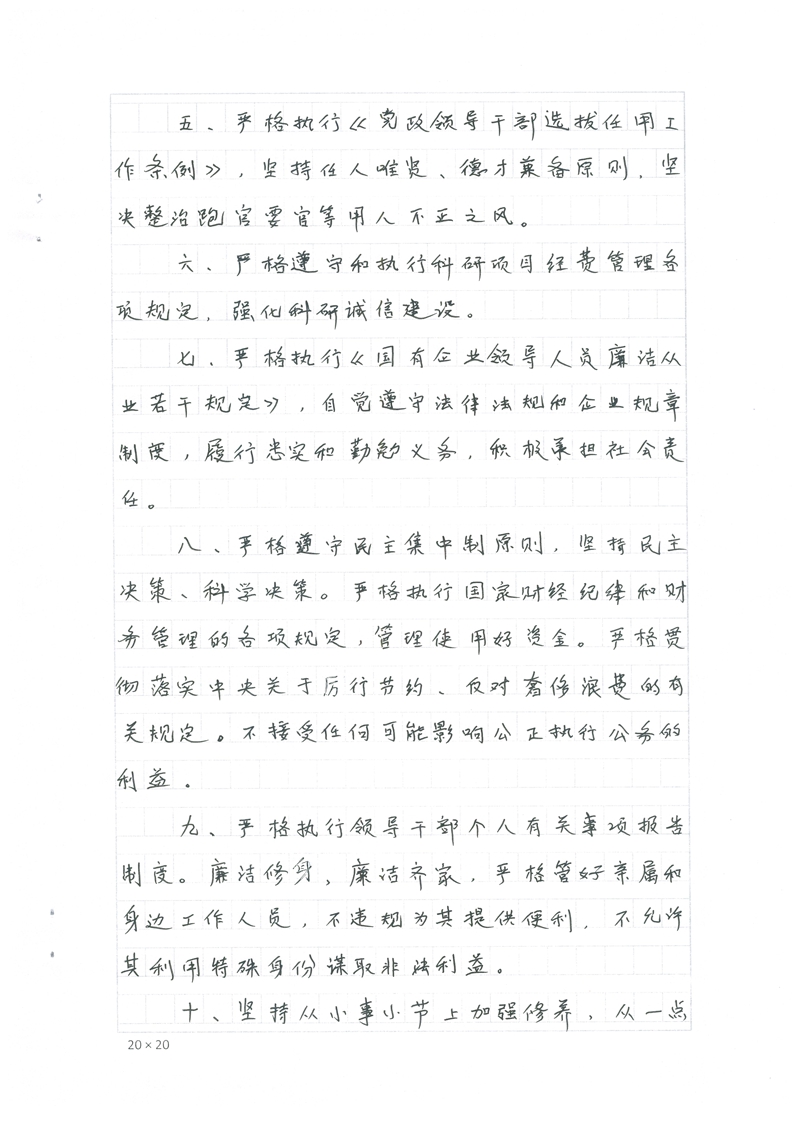 五、严格执行《党政领导干部选拔任用工
作条例》，坚持任人唯贤、德才兼备原则，坚
决整治跑官要官等用人不正之风。
六、严格遵守和执行科研项目经费管理各
项规定，强化科研诚信建设。
七、严格执行《国有企业领导人员廉洁从
业若干规定》，自觉遵守法律法规和企业规章
制度，履行忠实和勤勉义务，积极承担社会责
任。
八、严格遵守民主集中制原则，坚持民主
决策、科学决策。严格执行国家财经纪律和财
务管理的各项规定，管理使用好资金。严格贯
彻落实中央关于厉行节约、反对奢侈浪费的有
关规定。不接受任何可能影响公正执行公务的
利益。
九、严格执行领导干部个人有关事项报告
制度。廉洁修身，廉洁齐家，严格管好亲属和
身边工作人员，不违规为其提供便利，不允许
其利用特殊身份谋取非法利益。
十、坚持从小事小节上加强修养，从一点
20×20